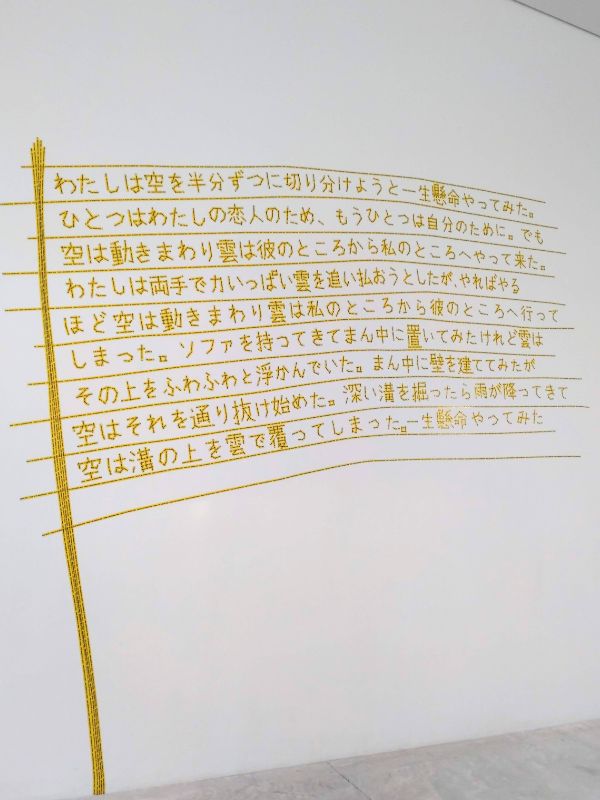 わたしは空を半分ずつに切り分けようと一生懸命やってみた。
ひとつはわたしの恋人のため、もうひとつは自分のために。でも
空は動きまわり雲は彼のところから私のところへやって来た。
わたしは両手で力いっぱい雲を追い払おうとしたが、やればやる
ほど空は動きまわり雲は私のところから彼のところへ行って
しまった。ソファを持ってきてまん中に置いてみたけれど雲は
その上をふわふわと浮かんでいた。まん中に壁を建ててみたが
空はそれを通り抜け始めた。深い溝を掘ったら雨が降ってきて
空は溝の上を雲で覆ってしまった。一生懸命やってみた